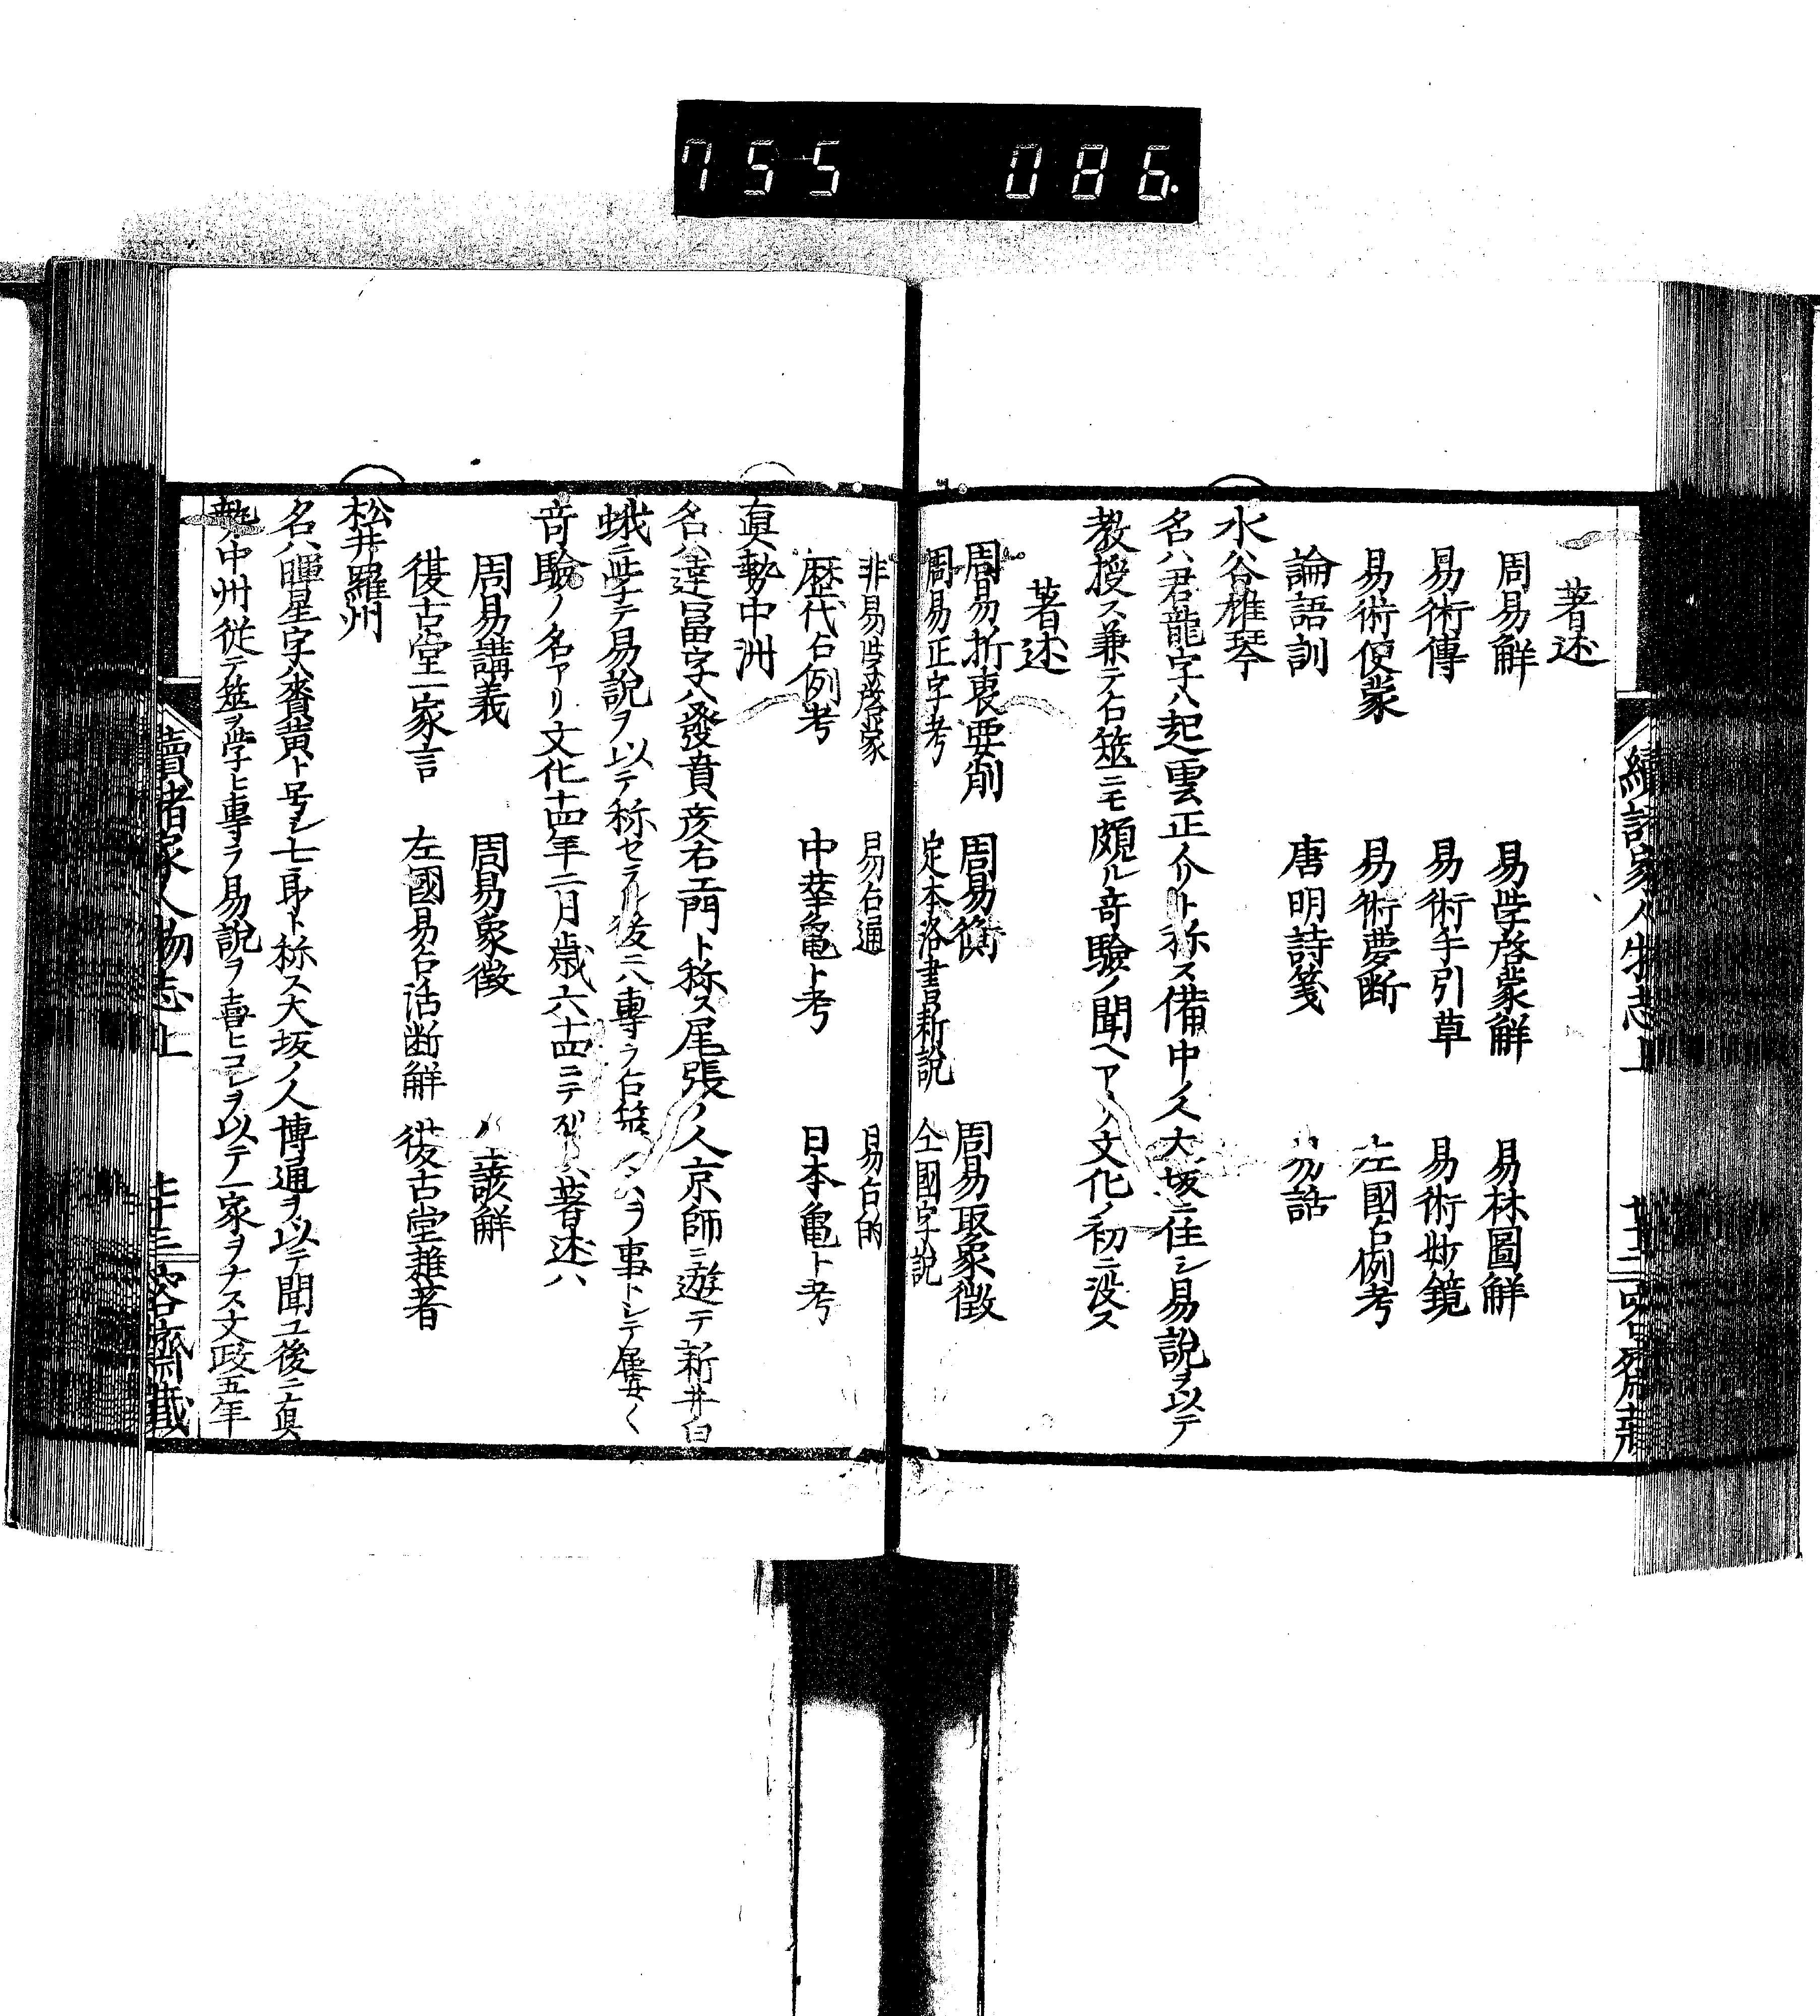 755 086
著述
周易解 易学啓蒙解 易林圖解
易術傳 易術手引草 易術妙鏡
易術便蒙 易術夢断 左國占例考
論語訓 唐明詩箋 易話
水谷雄琴
名ハ君龍字ハ起雲正介ト称ス備中ノ人大坂ニ住シ易説ヲ以テ
教授ス兼テ占筮ニモ頗ル奇驗ノ聞ヘアリ文化ノ初ニ没ス
著述
周易折衷要削 周易衡 周易取象徴
周易正字考 定本洛書新説 仝國字説
非易学啓蒙 易占通 易占的
歴代占例考 中華亀卜考 日本亀卜考
真勢中洲
名ハ達冨字ハ發賁彦右エ門ト称ス尾張ノ人京師ニ遊テ新井白
蛾ニ学テ易説ヲ以テ称セラル後ニハ專ラ占筮ヲ事トシテ屡〱
奇驗ノ名アリ文化十四年二月歳六十四ニテ著述ハ
周易講義 周易象徴 諺解
復古堂一家言 左國易占活断解 復古堂雜著
松井羅州
名ハ暉星字ハ賚黄ト号シ七郎ト称ス大坂ノ人博通ヲ以テ聞ユ後ニ真
勢中州從テ筮ヲ学ヒ專ラ易説ヲ喜ヒコレヲ以テ一家ヲナス文政五年
續諸家人物志上 廿三 容齋藏